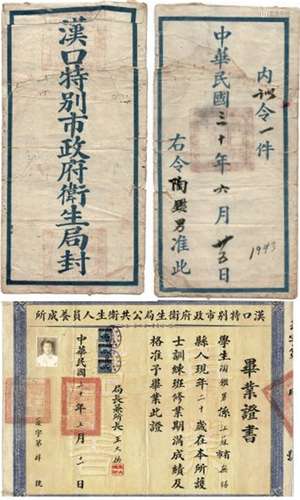 漢口特別市政府衛生局封
內訓令一件
中華民國三十年六月廿五日
右令陶麗男准此
1943
漢口特別市政府衛生局公共衛生人員養成所
畢業證書
學生
係江蘇省無錫
縣人現年二十歲在本所護
士訓練班修業期滿成績及
格准予畢業此證
局長兼所長
中華民國三十年五月